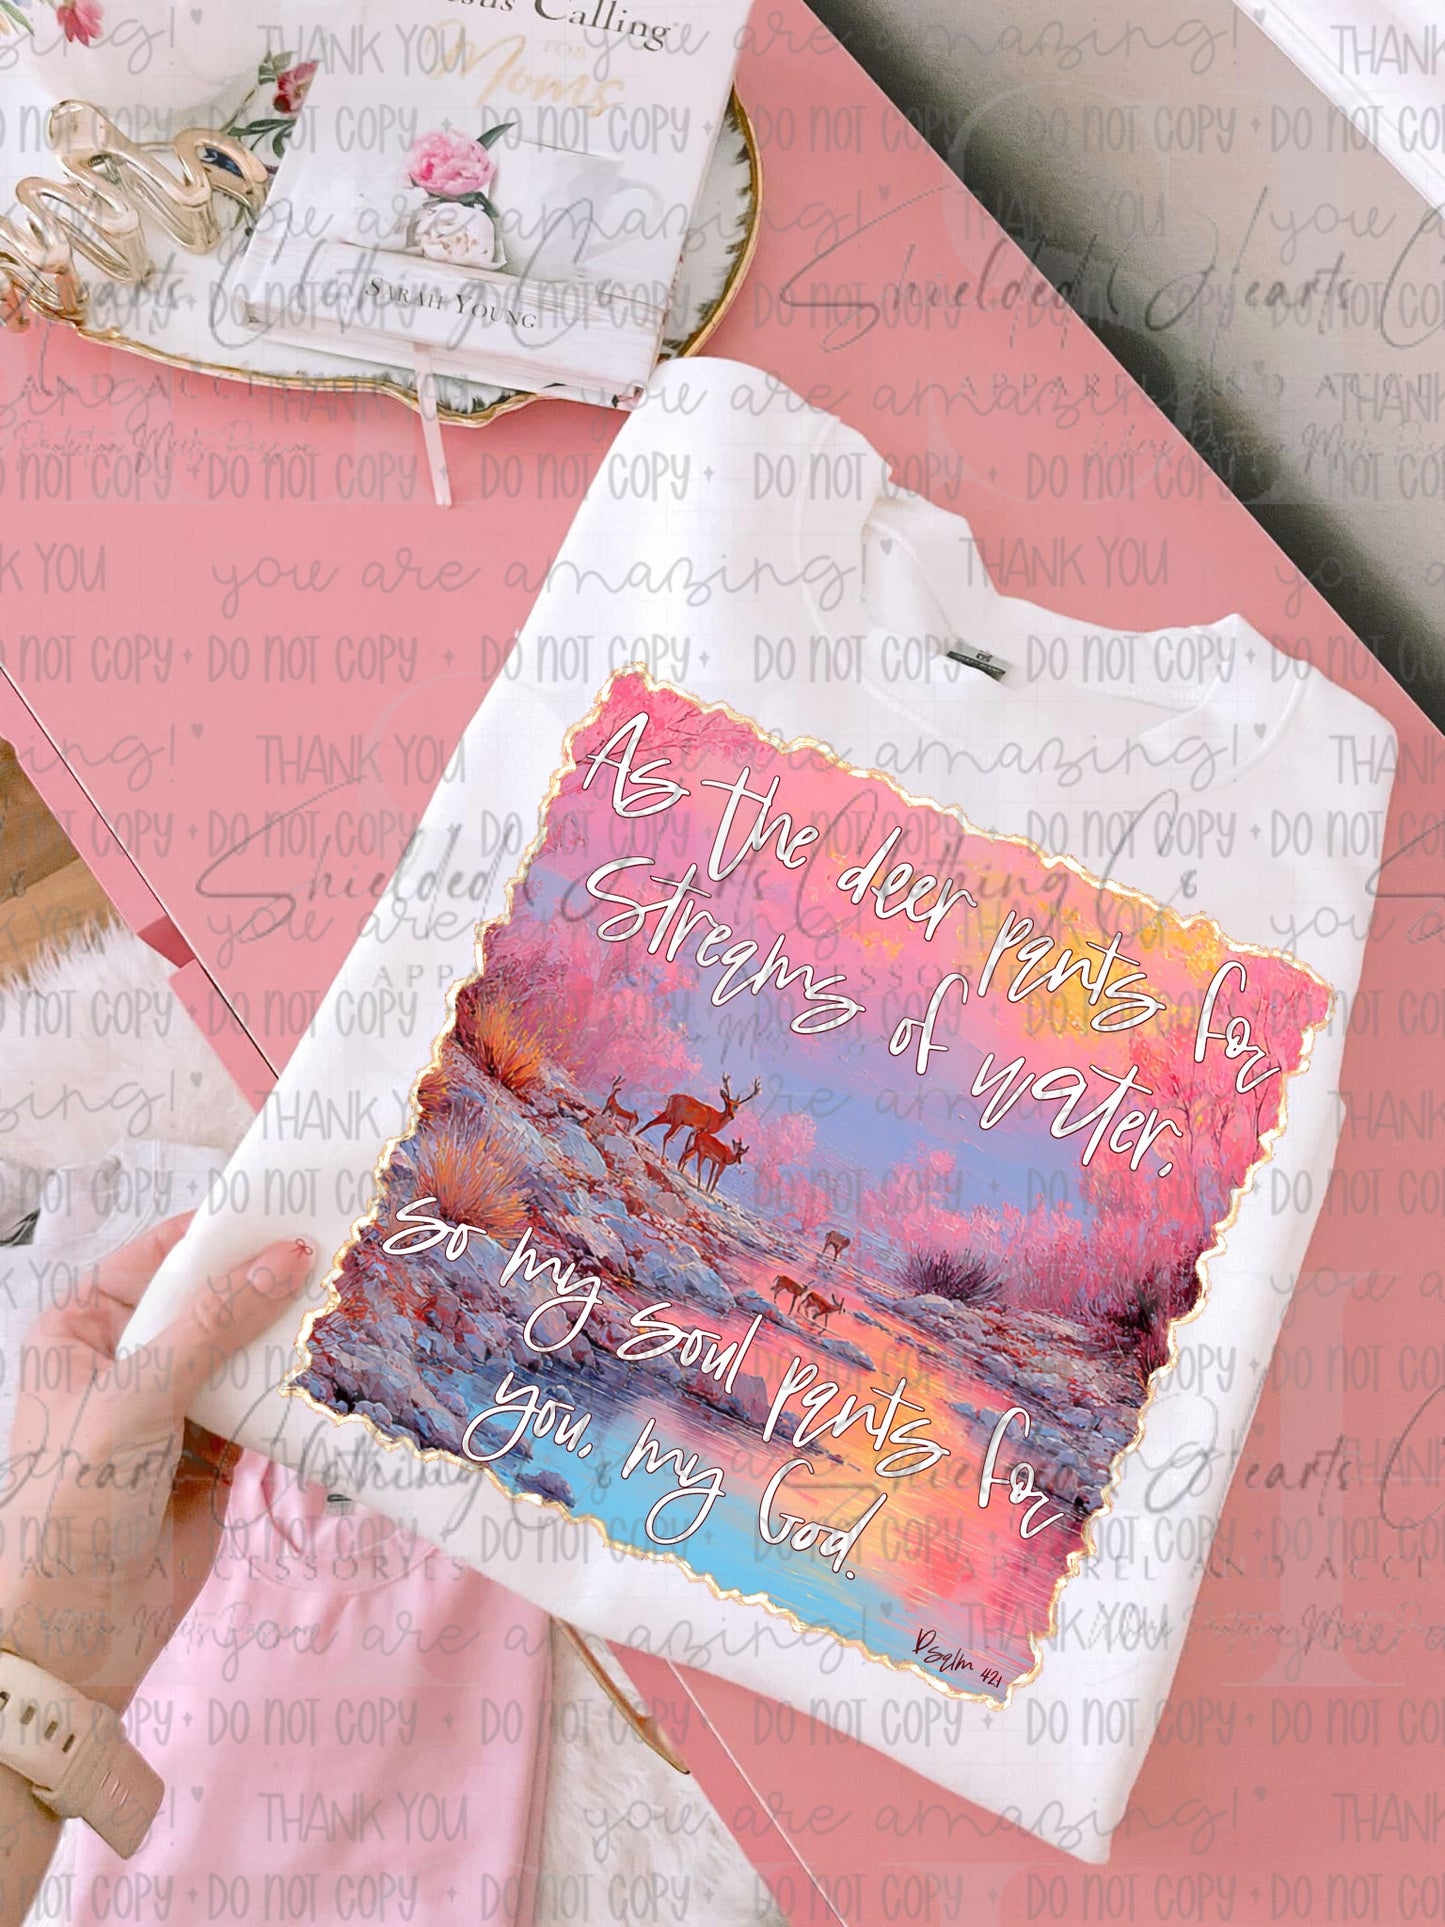 Jesus Calling
FOR
Moms
SARAH YOUNG
As the deer pants for
streams of water,
so my soul pants for
you, my God.
Psalm 421
THANK YOU you are amazing!
DO NOT COPY
Shielded Hearts Clothing Co
APPAREL AND ACCESSORIES